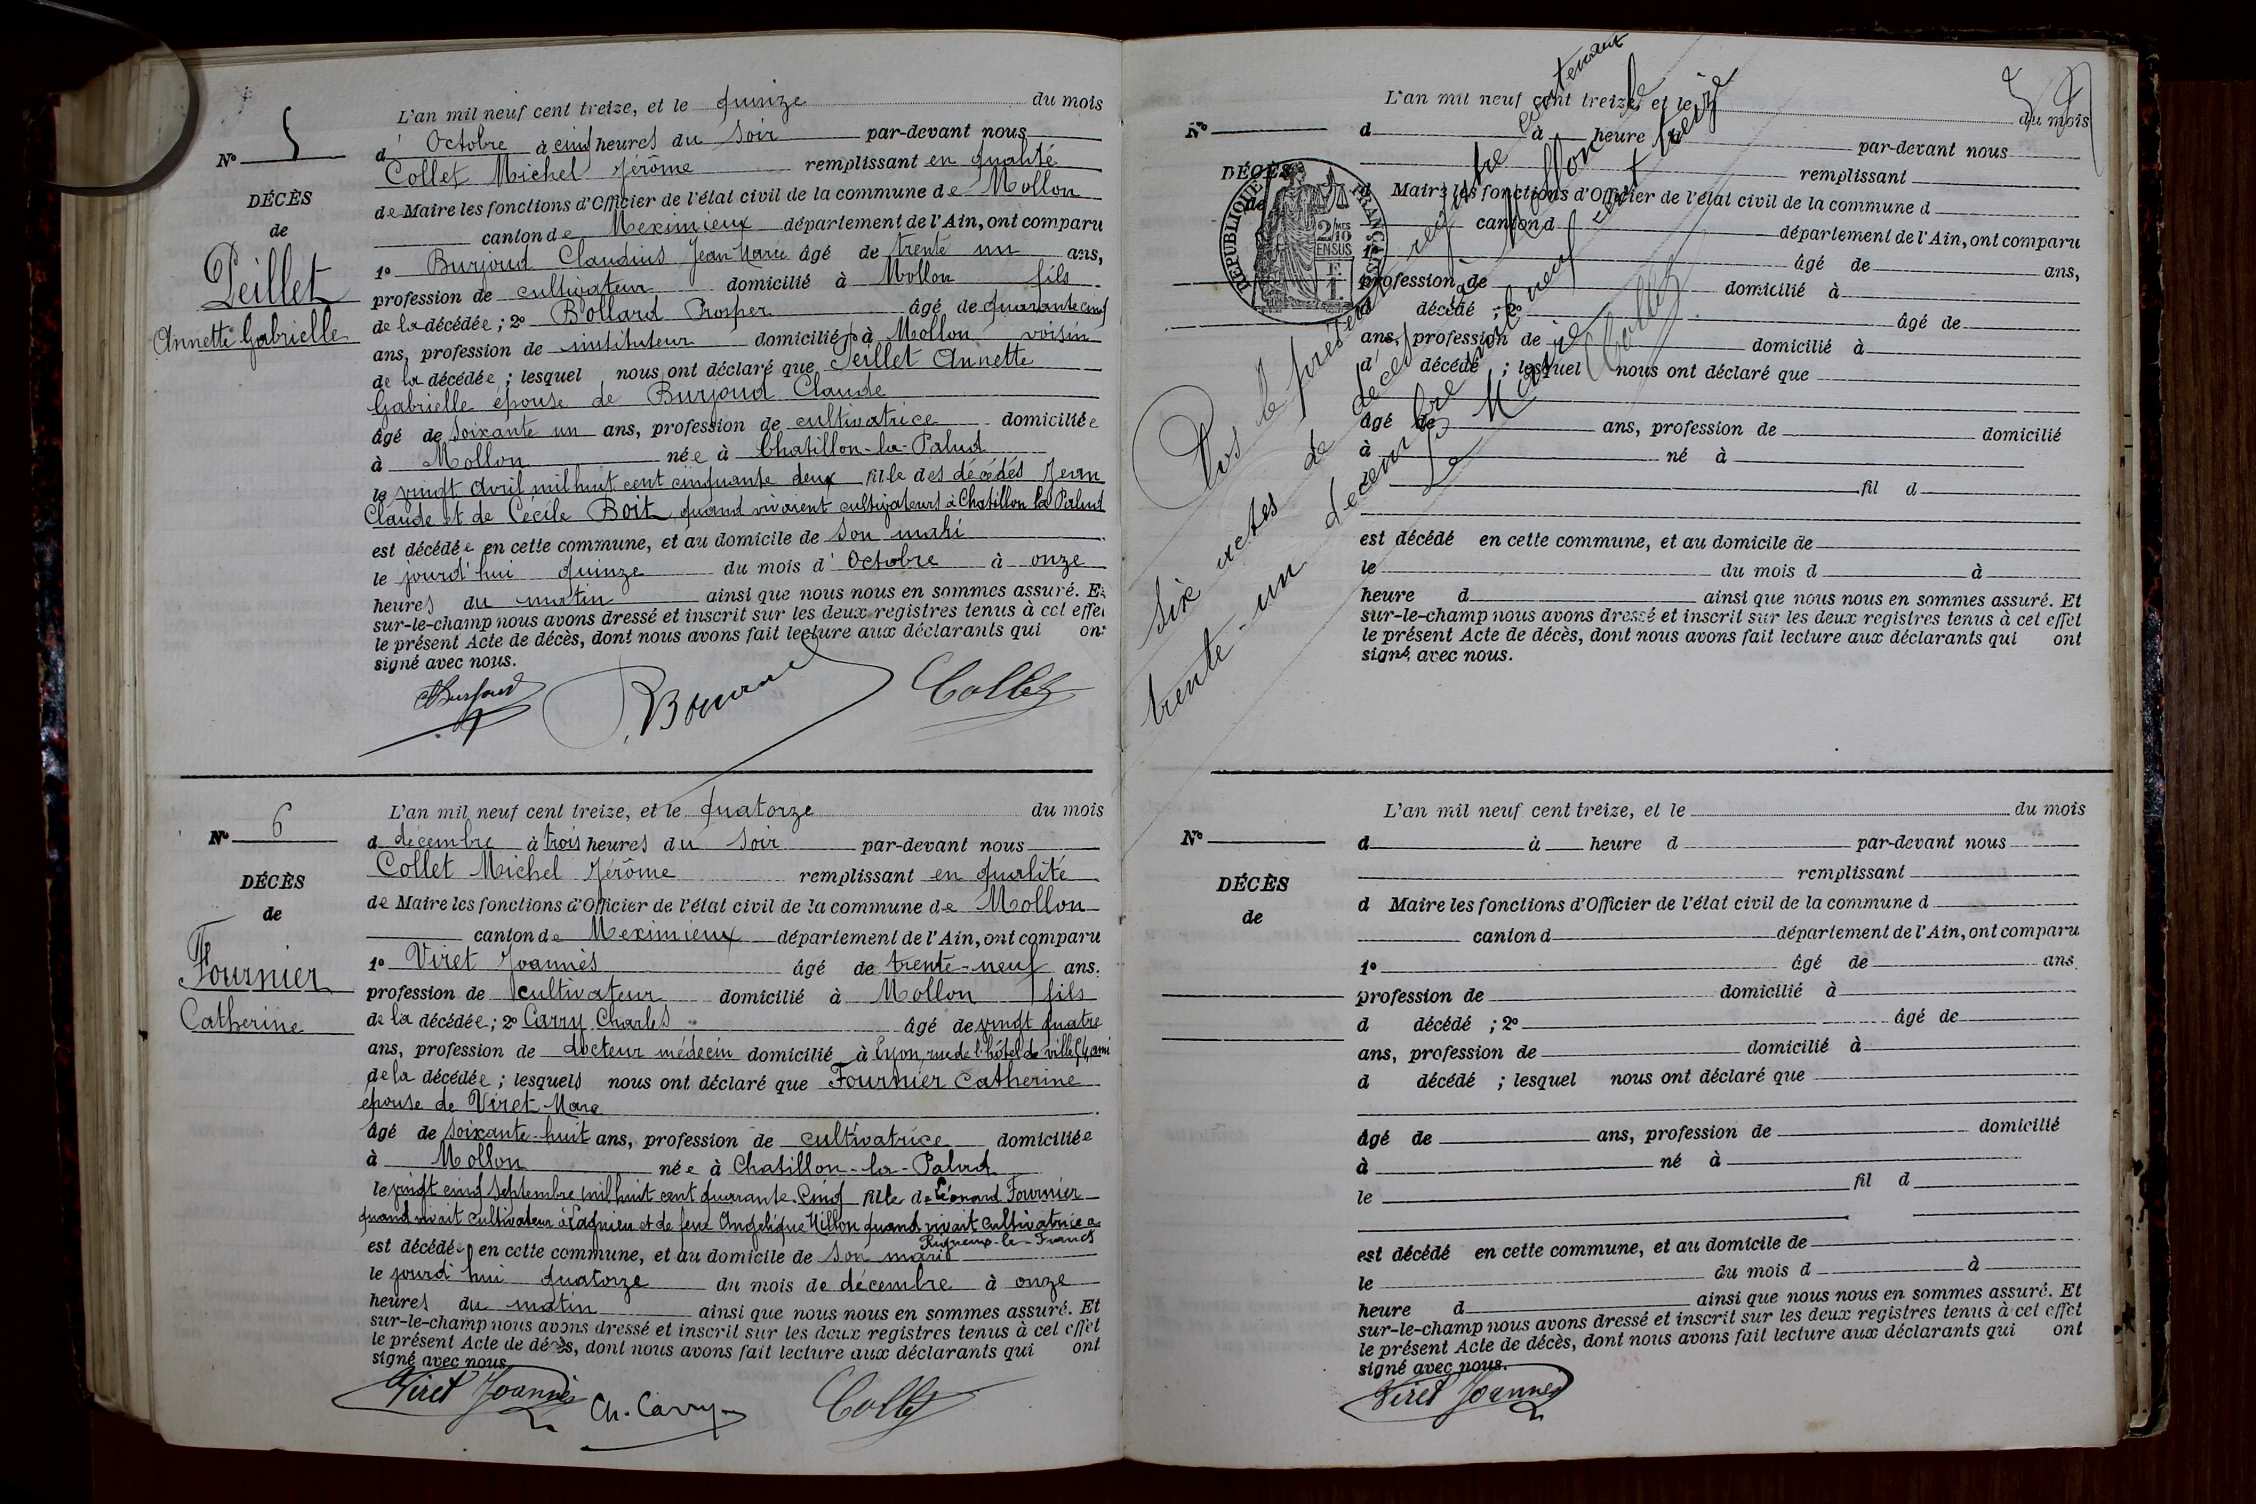 L'an mil neuf cent treize, et le quinze du mois
N° 5
d' Octobre à cinq heures du soir par-devant nous
Collet Michel Jérôme remplissant en qualité
DÉCÈS
de Maire les fonctions d'Officier de l'état civil de la commune de Mollon
de
canton de Meximieux département de l'Ain, ont comparu
Peillet
1° Burjoud Claudius Jean Marie âgé de trente un ans,
profession de cultivateur domicilié à Mollon fils
Annette Gabrielle
de la décédée ; 2° Bollard Prosper âgé de quarante cinq
ans, profession de instituteur domicilié à Mollon voisin
de la décédée ; lesquel nous ont déclaré que Peillet Annette
Gabrielle épouse de Burjoud Claude
âgé de soixante un ans, profession de cultivatrice domiciliée
à Mollon née à Chatillon-la-Palud
le vingt avril mil huit cent cinquante deux fille des décédés Jean
Claude et de Cécile Boit quand vivaient cultivateurs à Chatillon la Palud
est décédée en cette commune, et au domicile de son mari
le jourd'hui quinze du mois d' Octobre à onze
heures du matin ainsi que nous nous en sommes assuré. Et
sur-le-champ nous avons dressé et inscrit sur les deux registres tenus à cet effet
le présent Acte de décès, dont nous avons fait lecture aux déclarants qui ont
signé avec nous.
Burjoud Collet
L'an mil neuf cent treize, et le quatorze du mois
N° 6
d décembre à trois heures du soir par-devant nous
Collet Michel Jérôme remplissant en qualité
DÉCÈS
de Maire les fonctions d'Officier de l'état civil de la commune de Mollon
de
canton de Meximieux département de l'Ain, ont comparu
Fournier
1° Viret Joannès âgé de trente-neuf ans.
profession de cultivateur domicilié à Mollon fils
Catherine
de la décédée ; 2° Carry Charles âgé de vingt quatre
ans, profession de docteur médecin domicilié à Lyon, rue de l'hôtel de ville ami
de la décédée ; lesquels nous ont déclaré que Fournier Catherine
épouse de Viret Marc
âgé de soixante-huit ans, profession de cultivatrice domiciliée
à Mollon née à Chatillon-la-Palud
le vingt cinq septembre mil huit cent quarante-cinq fille de Léonard Fournier
quand vivait cultivateur à Lagnieu et de feue Angélique Millon quand vivait cultivatrice à
Rigneux-le-Franc
est décédée en cette commune, et au domicile de son marié
le jourd'hui quatorze du mois de décembre à onze
heures du matin ainsi que nous nous en sommes assuré. Et
sur-le-champ nous avons dressé et inscrit sur les deux registres tenus à cet effet
le présent Acte de décès, dont nous avons fait lecture aux déclarants qui ont
signé avec nous.
Viret Joannès Ch. Carry Collet
L'an mil neuf cent treize, et le du mois
N°
d à heure par-devant nous
remplissant
DÉCÈS
d Maire les fonctions d'Officier de l'état civil de la commune d
de
canton d département de l'Ain, ont comparu
1° âgé de ans,
profession de domicilié à
d décédé ; 2° âgé de
ans, profession de domicilié à
d décédé ; lesquel nous ont déclaré que
âgé de ans, profession de domicilié
à né à
le fil d
est décédé en cette commune, et au domicile de
le du mois d à
heure d ainsi que nous nous en sommes assuré. Et
sur-le-champ nous avons dressé et inscrit sur les deux registres tenus à cet effet
le présent Acte de décès, dont nous avons fait lecture aux déclarants qui ont
signé avec nous.
RÉPUBLIQUE FRANÇAISE
2/10
EN SUS
Clos le présent registre contenant
six actes de décès à Mollon le
trente-un décembre mil neuf cent treize
Le Maire
Collet
L'an mil neuf cent treize, et le du mois
N°
d à heure d par-devant nous
remplissant
DÉCÈS
d Maire les fonctions d'Officier de l'état civil de la commune d
de
canton d département de l'Ain, ont comparu
1° âgé de ans
profession de domicilié à
d décédé ; 2° âgé de
ans, profession de domicilié à
d décédé ; lesquel nous ont déclaré que
âgé de ans, profession de domicilié
à né à
le fil d
est décédé en cette commune, et au domicile de
le du mois d à
heure d ainsi que nous nous en sommes assuré. Et
sur-le-champ nous avons dressé et inscrit sur les deux registres tenus à cet effet
le présent Acte de décès, dont nous avons fait lecture aux déclarants qui ont
signé avec nous.
Viret Joannès